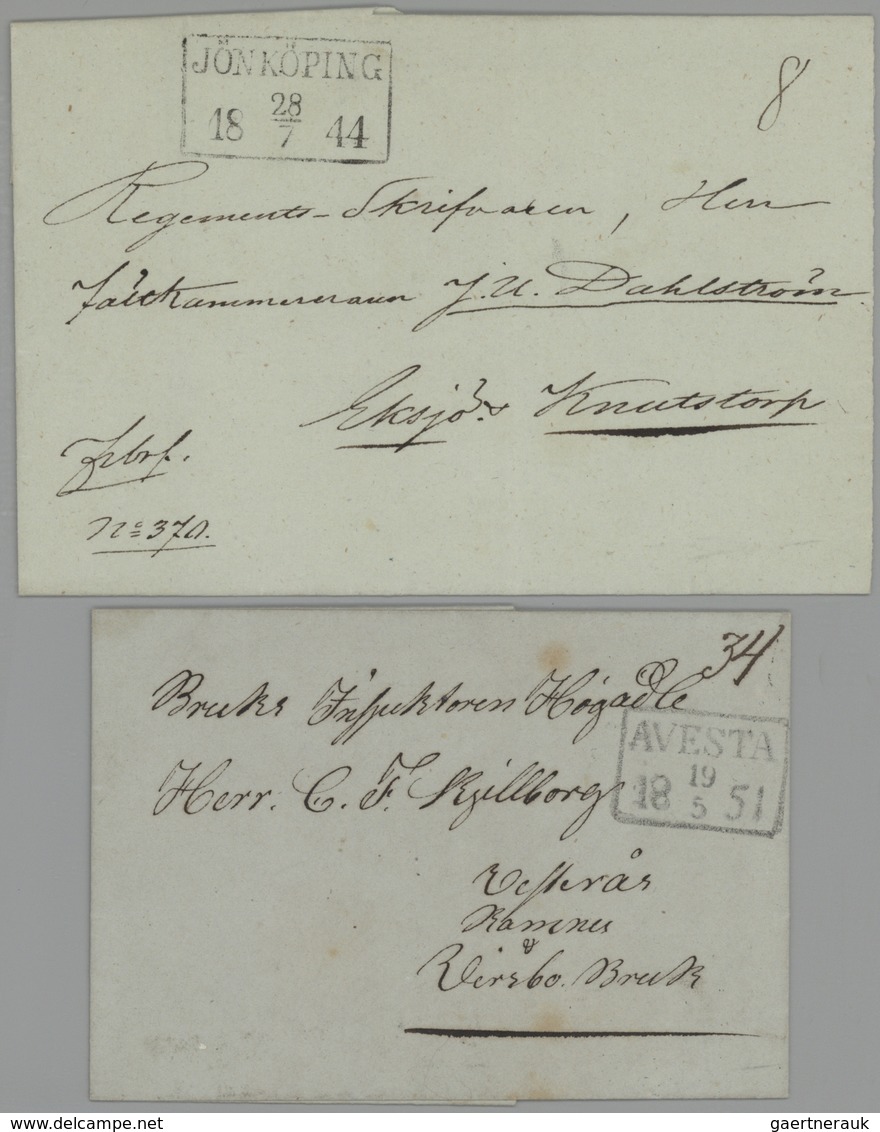 JÖNKÖPING
18 28/7 44
8
Regements-Skrifvaren, Herr
Fältkammereraren J. U. Dahlström
Eksjö & Knutstorp
Frbrf.
No 370.
34
Bruks Inspektoren Högädle
AVESTA
18 19/5 51
Herr. C. F. Kjillborg
Vesterås
Ramnes
&
Virsbo. Bruk
delcampe.net
gaertnerauk